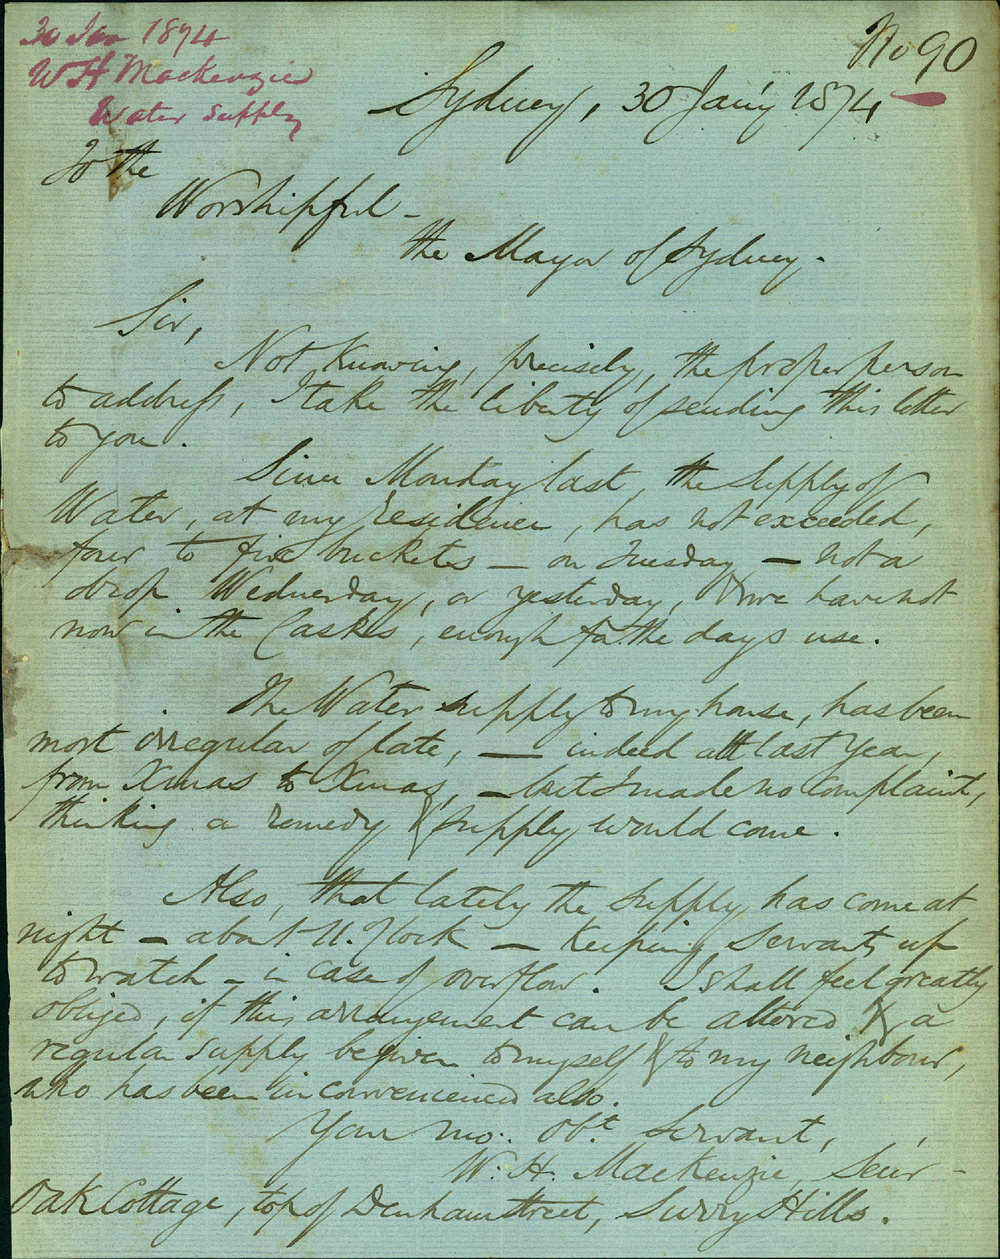 30 Jan 1874
W H Mackenzie
Water Supply
No 90
Sydney, 30 Jany 1874
To the
Worshipful -
the Mayor of Sydney.
Sir,
Not knowing, precisely, the proper person
to address, I take the liberty of sending this letter
to you.
Since Monday last, the Supply of
Water, at my residence, has not exceeded,
four to five buckets — on Tuesday — not a
drop Wednesday, or yesterday, & we have not
now in the Casks, enough for the days use.
The Water supply to my house, has been
most irregular of late, — indeed all last year,
from Xmas to Xmas, — but I made no complaint,
thinking a remedy & supply would come.
Also, that lately the supply has come at
night — about 11.O'Clock — keeping servants up
to watch — in case of overflow. I shall feel greatly
obliged, if this arrangement can be altered & a
regular supply be given to myself & to my neighbour,
who has been inconvenienced also.
Your mo: Obt. Servant,
W. H. MacKenzie, Senr -
Oak Cottage, top of Denham Street, Surry Hills.